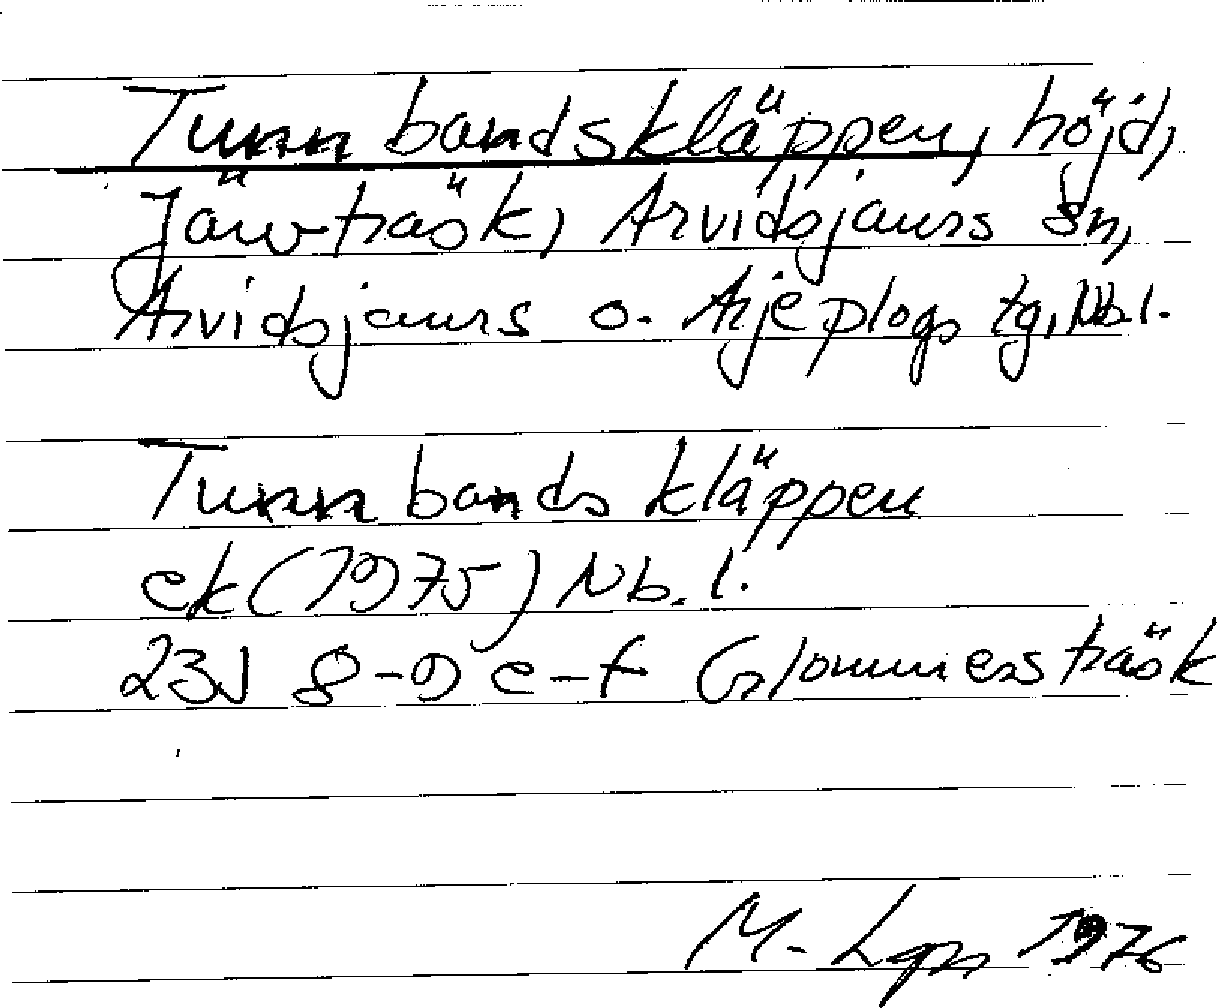 Tunnbandskläppen, höjd,
Järvträsk, Arvidsjaurs sn,
Arvidsjaurs o. Arjeplogs tg, Nb.l.
Tunnbandskläppen
ek (1975) Nb. l.
23J 8-9 e-f Glommersträsk
M. Lgn 1976